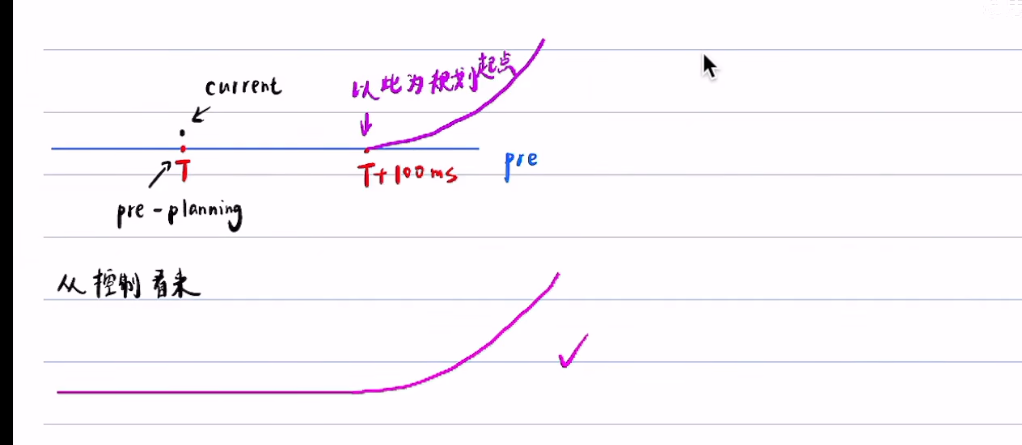 current
以此为规划起点
T
T+100ms
pre
pre-planning
从控制看来